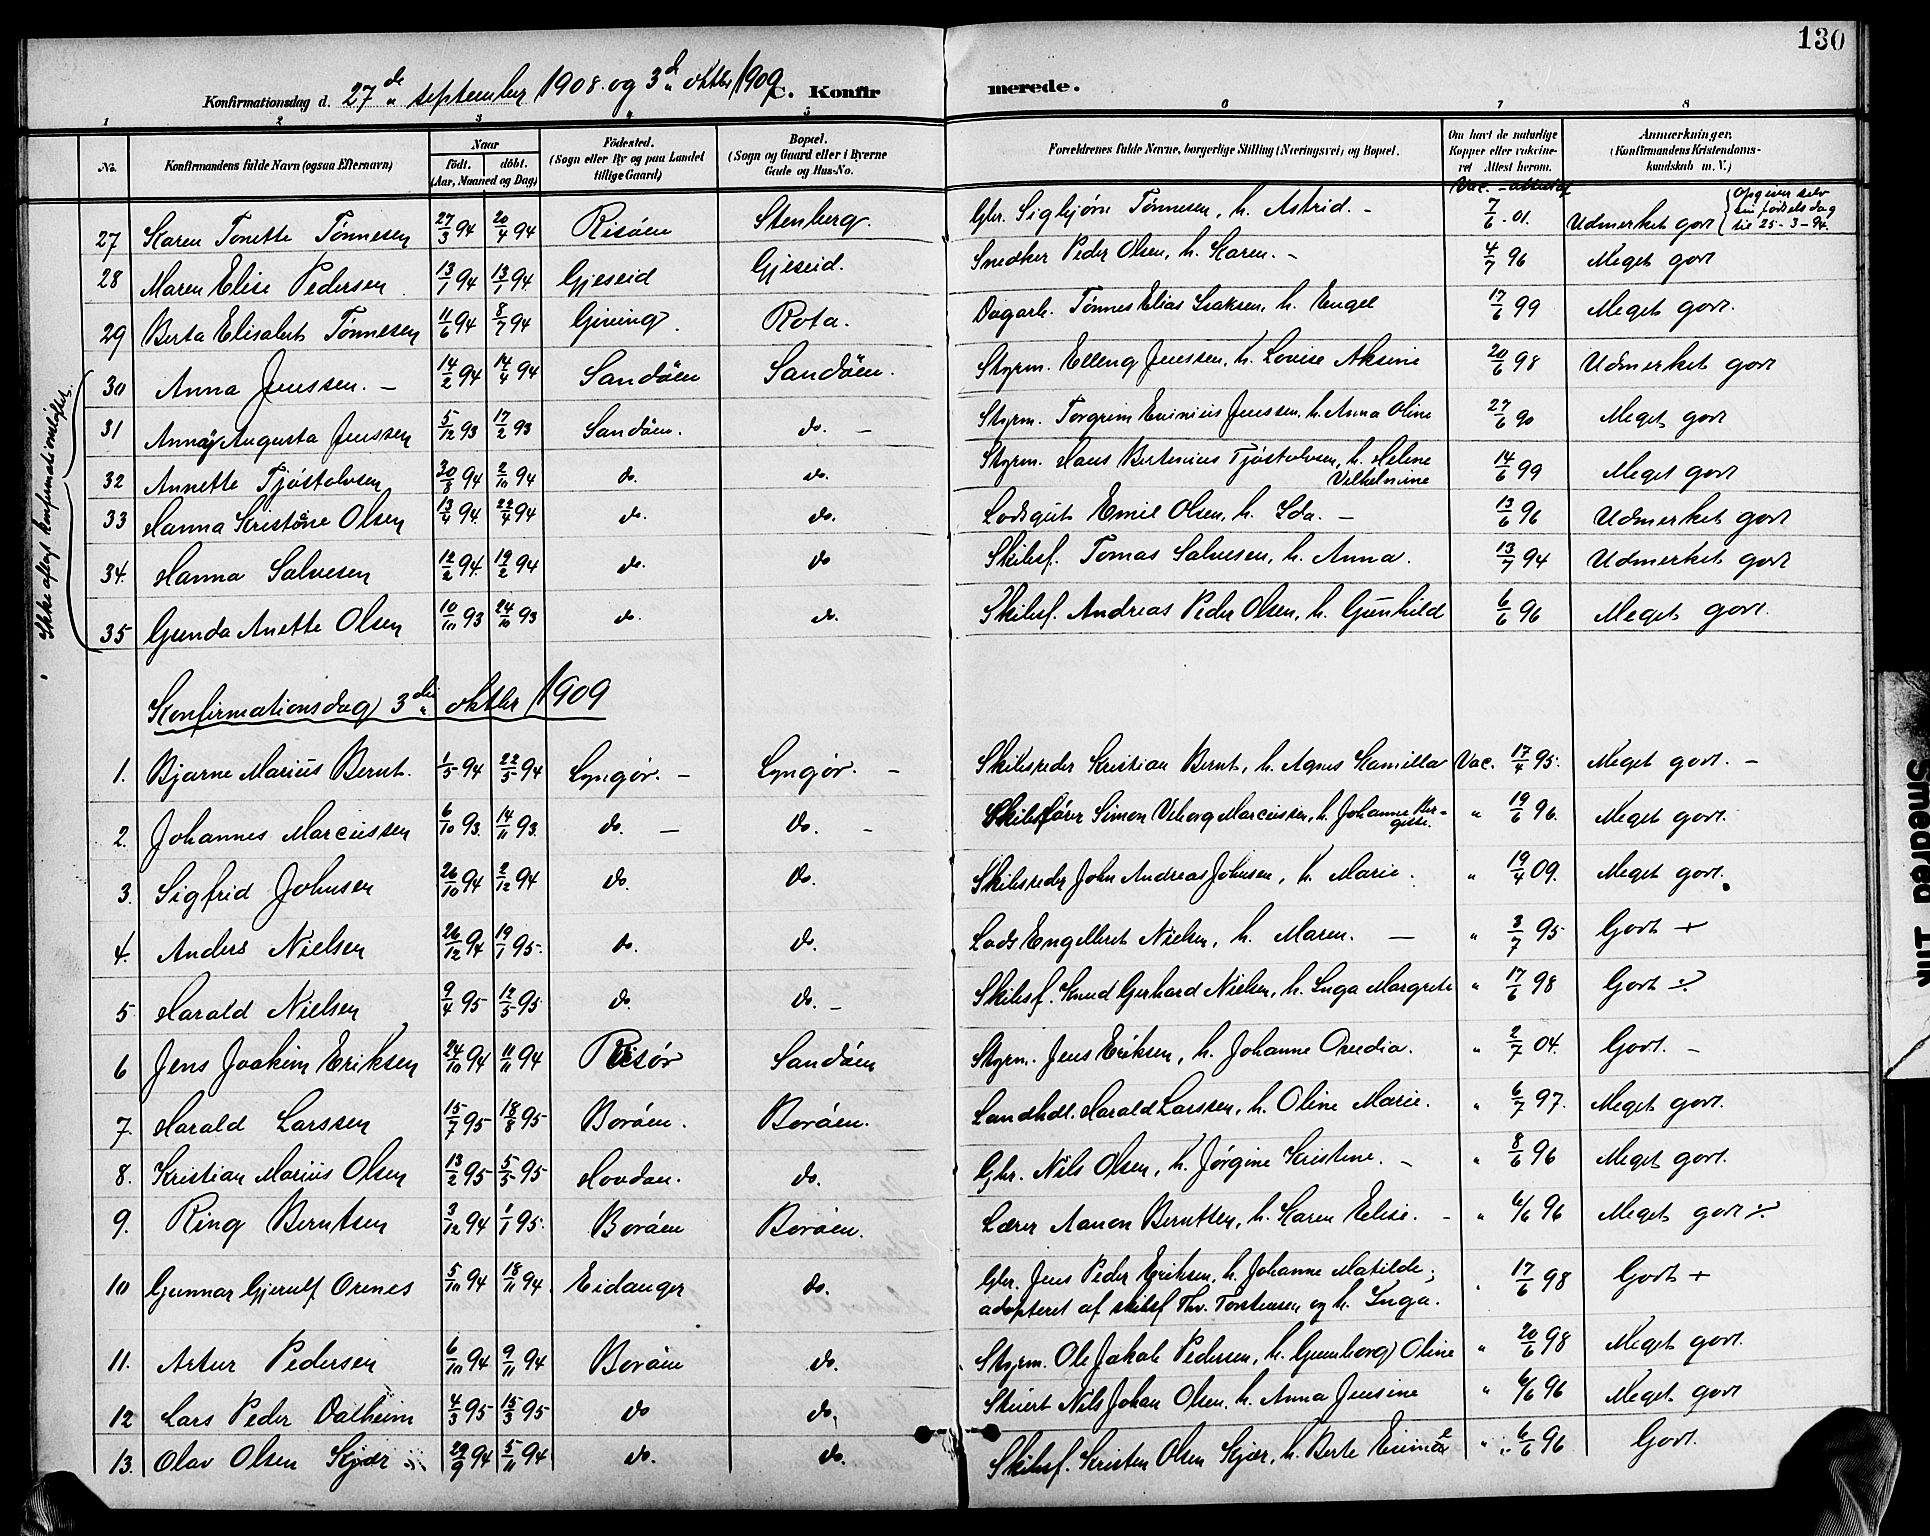 130
Konfirmationsdag d. 27de september 1908 og 3d oktbr 1909 C. Konfirmerede.
1 2 3 4 5 6 7 8
No. Konfirmandens fulde Navn (ogsaa Efternavn) Naar födt. döbt. (Aar, Maaned og Dag) Födested. (Sogn eller By og paa Landet tillige Gaard) Bopæl. (Sogn og Gaard eller i Byerne Gade og Hus-No. Forældrenes fulde Navne, borgerlige Stilling (Næringsvei) og Bopæl. Om havt de naturlige Kopper eller vakcineret Attest herom. Anmærkninger. (Konfirmandens Kristendomskundskab m. V.)
Vac. - attestert
27 Karen Tonette Tønnesen 27/3 94 20/4 94 Risöen Stenberg. Gbr. Sigbjörn Tönnesen, h. Astrid. - 7/6 01. Udmerket godt {Opgiver selv sin födselsdag til 25-3-94.
28 Maren Elise Pedersen 13/1 94 13/1 94 Gjeseid Gjeseid. Snedker Peder Olsen, h. Karen. - 4/7 96 Meget godt
29 Berta Elisabet Tönnesen 11/6 94 8/7 94 Giving. Rota. Dagarb. Tønnes Elias Isaksen, h. Engel 17/6 99 Meget godt.
30 Anna Jenssen. - 14/2 94 14/4 94 Sandöen Sandöen. Styrm. Elleng Jenssen, h. Lovise Aksine 20/6 98 Udmerket godt
31 Anna Augusta Jenssen 5/12 93 17/2 93 Sandöen. do. - Styrm. Torgrim Eminius Jenssen, h. Anna Oline 27/6 90 Meget godt
32 Annette Tjöstolvsen 30/8 94 2/10 94 do. do. Styrm. Hans Bertenius Tjöstolvsen, h. Helene Vilhelmine 14/6 99 Meget godt
33 Hanna Kristine Olsen 13/4 94. 22/4 94 do. do. Lodsgut Emil Olsen, h. Ida. - 13/6 96 Udmerket godt
34. Hanna Salvesen 12/2 94. 19/2 94 do. do Skibsf. Tomas Salvesen, h. Anna. 13/7 94 Udmerket godt
35 Gunda Anette Olsen 10/10 93 24/10 93 do. do. Skibsf. Andreas Peder Olsen, h. Gunhild 6/6 96 Meget godt.
Ikke aflagt konfirmationsløfte.
Konfirmationsdag 3die oktbr 1909
1. Bjarne Marius Bernt. 1/5 94 22/5 94 Lyngör. - Lyngör. - Skibsreder Kristian Bernt, h. Agnes Kamilla Vac. 17/4 95. Meget godt. -
2. Johannes Marcussen 6/10 93. 14/11 93. do. - do. - Skibsfører Simon Viborg Marcussen, h. Johanne Bergitte. " 19/6 96. Meget godt.
3. Sigfrid Johnsen 26/10 94 2/12 94 do. do. Skibsreder John Andreas Johnsen, h. Marie. " 19/4 09. Meget godt.
4. Anders Nielsen 26/12 94 19/1 95. do. do. Lods Engelbret Nielsen, h. Maren. - " 3/7 95 Godt +
5 Harald Nielsen 9/4 95 12/5 95 do. do. - Skibsf. Knud Gerhard Nielsen, h. Inga Margrete " 17/6 98 Godt
6 Jens Joakim Eriksen 24/10 94 11/11 94 Risör Sandöen Styrm. Jens Eriksen, h. Johanne Ovedia. " 2/7 04. Godt. -
7. Harald Larssen 15/7 95 18/8 95 Boröen. Boröen. Landhdl. Harald Larssen, h. Oline Marie. " 6/7 97. Meget godt.
8. Kristian Marius Olsen 13/2 95 5/5 95 Hovdan. do. Gbr. Nils Olsen, h. Jörgine Kristine. - " 8/6 96 Meget godt.
9. Ring Berntsen 3/12 94 1/1 95. Boröen Boröen. Lærer Aanon Berntsen, h. Karen Elise. - " 6/6 96 Meget godt
10 Gunnar Gjerulf Orenes 5/10 94 18/11 94. Eidanger do. Gbr. Jens Peder Eriksen, h. Johanne Matilde; " 17/6 98 Godt +
adopteret af skibsf Thv. Torstensen og h. Inga.
11. Artur Pedersen 6/10 94 9/11 94 Boröen do. Styrm. Ole Jakob Pedersen, h. Gunborg Oline " 20/6 98 Meget godt.
12 Lars Peder Dalheim 4/3 95 15/3 95 do do. Stuert Nils Johan Olsen, h. Anna Jensine " 6/6 96 Meget godt
13. Olav Olsen Kjær 29/9 94 5/11 94 do. do. Skibsf. Kristen Olsen Kjær, h. Berte " 6/6 96 Godt.
Smedred T.nr